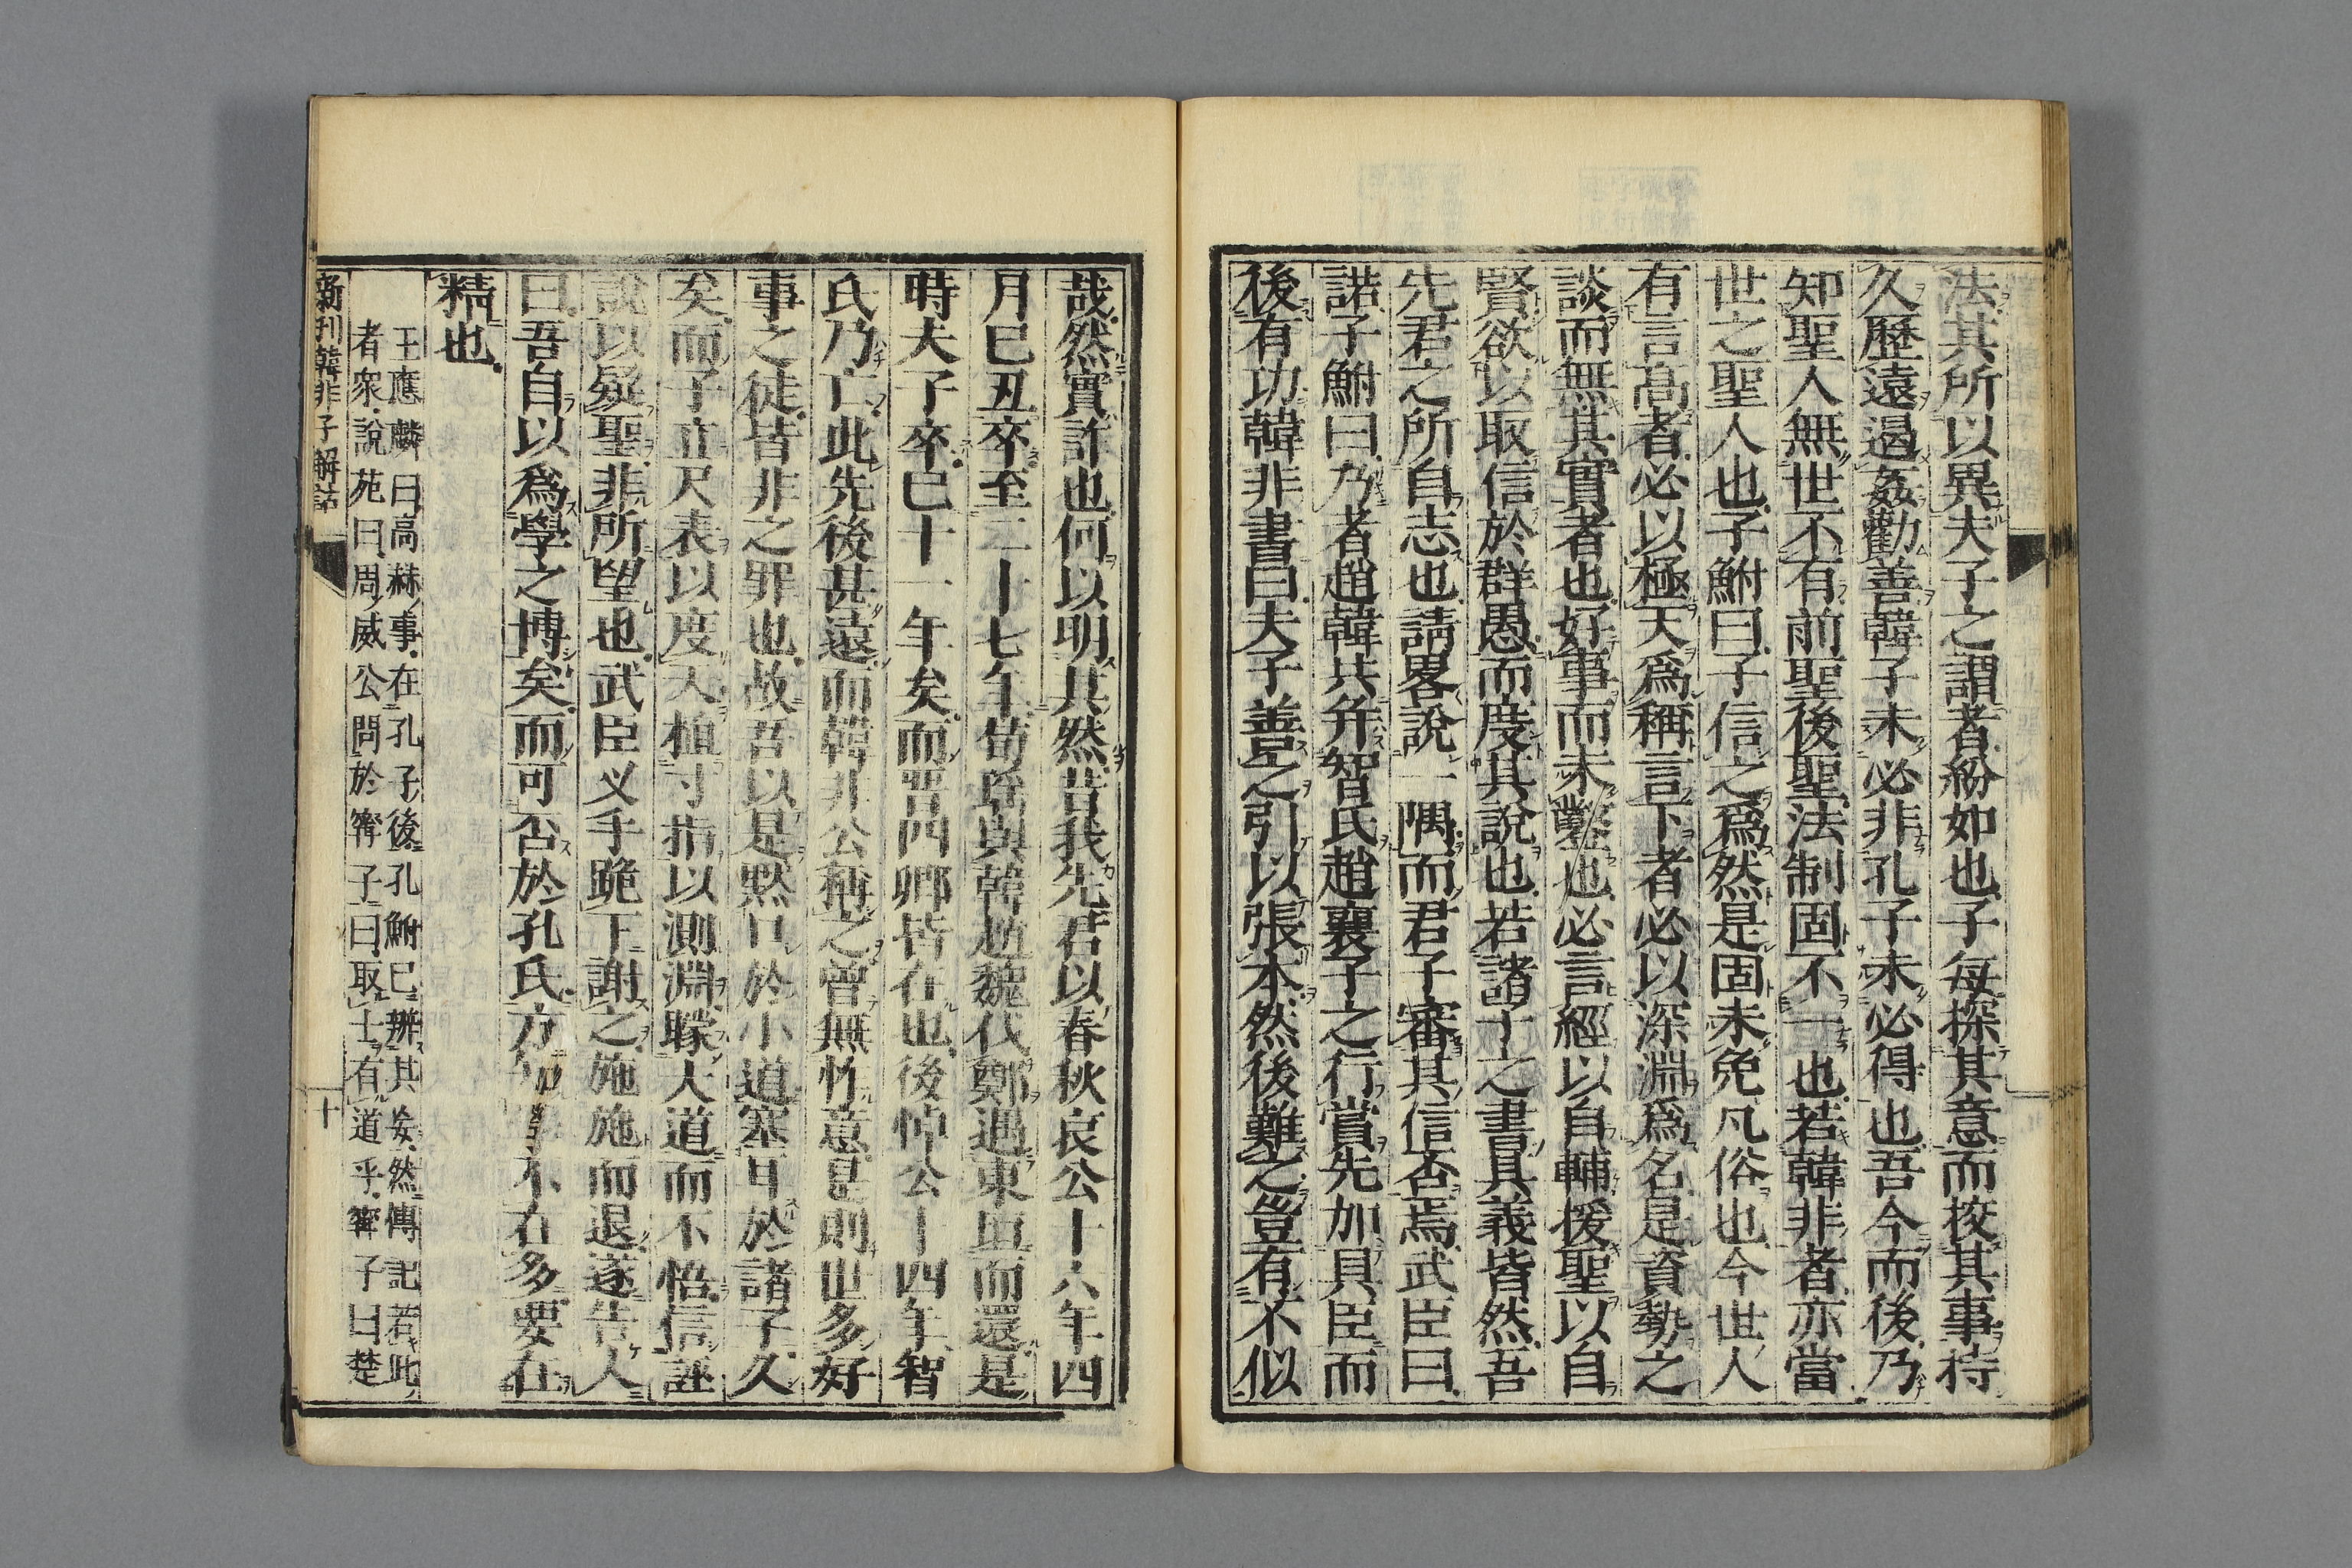 法其所以異夫子之謂者紛如也子每探其意而挍其事持
久歷遠遏姦勸善韓子未必非孔子未必得也吾今而後乃
知聖人無世不有前聖後聖法制固不一也若韓非者亦當
世之聖人也子鮒曰子信之爲然是固未免凡俗也今世人
有言高者必以極天爲稱言下者必以深淵爲名是資勢之
談而無其實者也好事而未鑿也必言經以自輔援聖以自
賢欲以取信於群愚而度其說也若諸子之書其義皆然吾
先君之所自志也請畧說一隅而君子審其信否焉武臣曰
諾子鮒曰乃者趙韓共并智氏趙襄子之行賞先加具臣而
後有功韓非書曰夫子善之引以張本然後難之豈有不似
哉然實詐也何以明其然昔我先君以春秋哀公十六年四
月己丑卒至二十七年荀瑶與韓趙魏伐鄭遇東垣而還是
時夫子卒已十一年矣而晋四卿皆在也後悼公十四年智
氏乃亡此先後甚遠而韓非公稱之曾無怍意是則世多好
事之徒皆非之罪也故吾以是黙口於小道塞耳於諸子久
矣而子立尺表以度天植寸指以測淵矇大道而不悟信誣
說以疑聖非所望也武臣乂手跪下謝之施施而退遂告人
曰吾自以爲學之博矣而可否於孔氏方知學不在多要在
精也
王應麟曰高赫事在孔子後孔鮒已辨其妄然傳記若此
者衆說苑曰周威公問於甯子曰取士有道乎甯子曰楚
新刊韓非子解詁
十